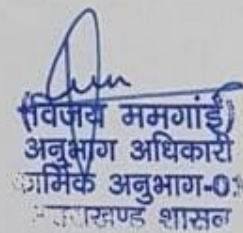 (विजय ममगांई)
अनुभाग अधिकारी
कार्मिक अनुभाग-0
उत्तराखण्ड शासन